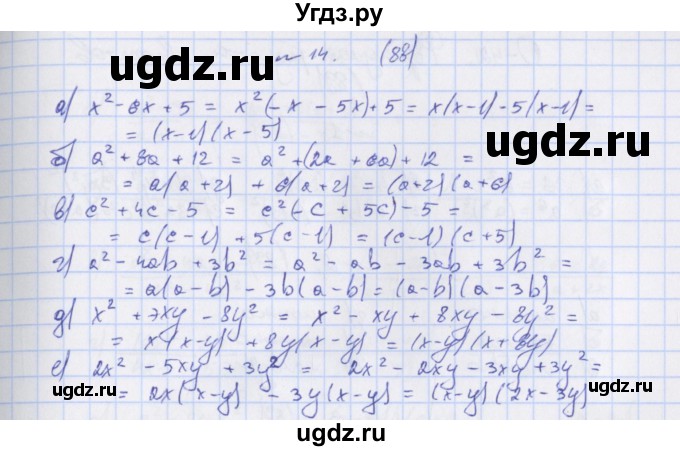 Угдз.ру
ugdz.ru ugdz.ru ugdz.ru
№ 14. (88)
а) x² - 6x + 5 = x²(- x - 5x) + 5 = x(x-1) - 5(x-1) =
= (x-1)(x-5)
ugdz.ru
б) a² + 8a + 12 = a² + (2a + 6a) + 12 =
= a(a+2) + 6(a+2) = (a+2)(a+6)
в) c² + 4c - 5 = c²(-c + 5c) - 5 =
= c(c-1) + 5(c-1) = (c-1)(c+5)
г) a² - 4ab + 3b² = a² - ab - 3ab + 3b² =
= a(a-b) - 3b(a-b) = (a-b)(a-3b)
ugdz.ru ugdz.ru
д) x² + 7xy - 8y² = x² - xy + 8xy - 8y² =
= x(x-y) + 8y(x-y) = (x-y)(x+8y)
е) 2x² - 5xy + 3y² = 2x² - 2xy - 3xy + 3y² =
= 2x(x-y) - 3y(x-y) = (x-y)(2x-3y)
ugdz.ru ugdz.ru
ugdz.ru